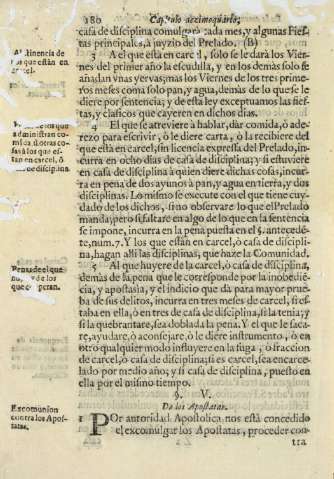 280 Capitulo dezimoquarto,
casa de disciplina comulgarà cada mes, y algunas Fies-
tas principales, à juyzio del Prelado. (B)
Abstinencia de
los que están en
carcel.
3 Al que està en carcel, solo se le darà los Vier-
nes del primer año la escudilla, y en los demàs solo se
añadan vnas yervas; mas los Viernes de los tres prime-
ros meses coma solo pan, y agua, demàs de lo que se le
diere por sentencia; y de esta ley exceptuamos las fies-
tas, y clasicos que cayeren en dichos dias.
que
administran co-
mida, ù otras co-
sas à los que es-
tan en carcel, ò
casa de disciplina
4 El que se atreviere à hablar, dàr comida, ò ade-
rezo para escrivir, ò le diere carta, ò la recibiere del
que està en carcel, sin licencia expressa del Prelado, in-
curra en ocho dias de casa de disciplina; y si estuviere
en casa de disciplina à quien diere dichas cosas, incur-
ra en pena de dos ayunos à pan, y agua en tierra, y dos
disciplinas. Lo mismo se execute con el que tiene cuy-
dado de los dichos, si no observare lo que el Prelado
manda; pero si faltare en algo de lo que en la sentencia
se impone, incurra en la pena puesta en el §. antecedē-
te, num. 7. Y los que estàn en carcel, ò casa de discipli-
na, hagan allì las disciplinas, que haze la Comunidad.
Penas de el que
huye, y de los
que cooperan.
5 Al que huyere de la carcel, ò casa de disciplina,
demàs de la pena que le corresponde por la inobediē-
cia, y apostasia, y el indicio que dà para mayor prue-
ba de sus delitos, incurra en tres meses de carcel, si es-
taba en ella, ò en tres de casa de disciplina, si la tenia; y
si la quebrantare, sea doblada la pena. Y el que le saca-
re, ayudare, ò aconsejare, ò le diere instrumento, ò en
otro qualquier modo influyere en la fuga, ò fraccion
de carcel, ò casa de disciplina; si es carcel, sea encarce-
lado por medio año; y si casa de disciplina, puesto en
ella por el mismo tiempo.
§. V.
De los Apostatas.
Excomunion
contra los Apos-
tatas.
1 POr autoridad Apostolica nos està concedido
el excomulgar los Apostatas, proceder con-
tra